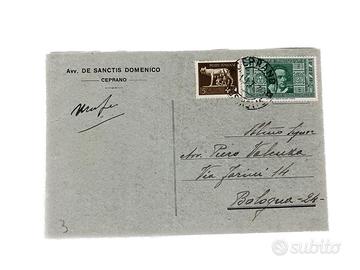 Avv. DE SANCTIS DOMENICO
CEPRANO
POSTE ITALIANE
5
25
CEPRANO
Avv. Piero Valenza
Via Farini 14
Bologna - 24 -
3
subito